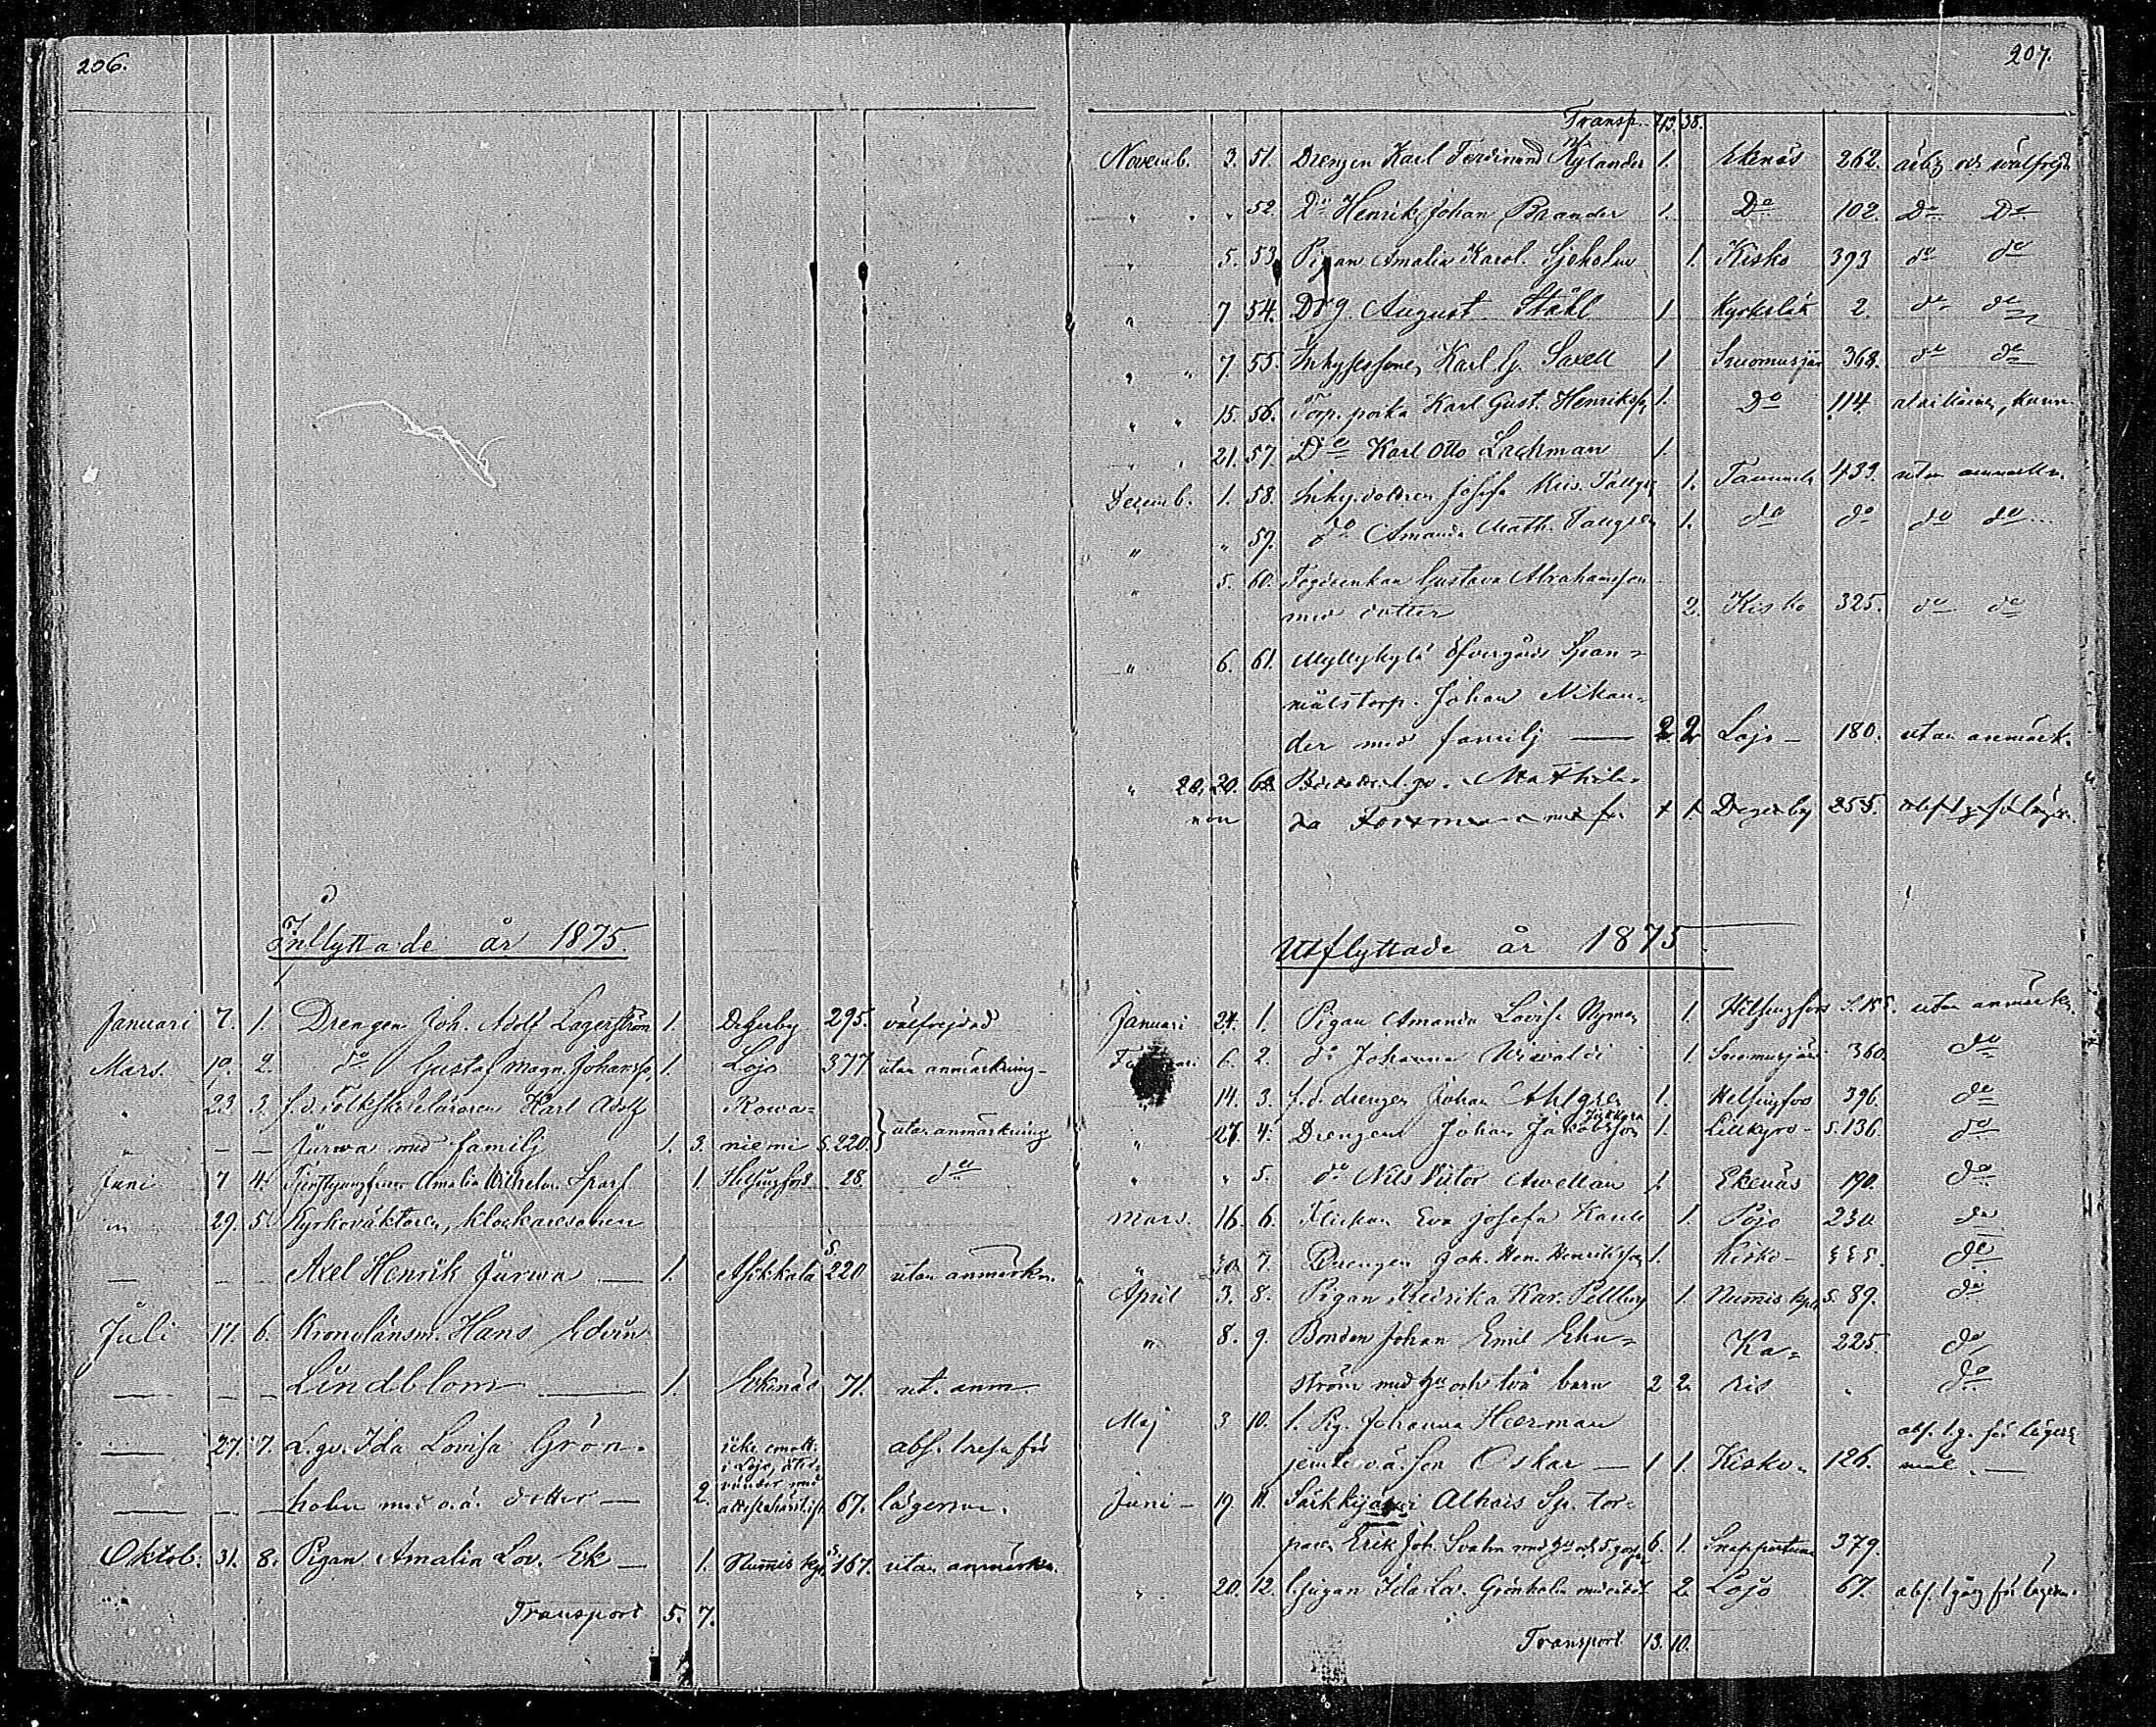 206.
Inflyttade år 1875
Januari 7. 1. Drengen Joh. Adolf Lagerström 1. Degerby 295. välfrejdad
Mars. 10. 2. do Gustaf Magn. Johansso 1. Lojo 377 utan anmärkning
" 23 3. f.d. Folkskoleläraren Karl Adolf Rowa=
" — — Järwa med familj 1. 3. niemi S. 220. utan anmärkning
Juni 7 4. Amalia Wilhelm. Sparf 1. Helsingfors 28. do
" 29. 5. Kyrkoväktaren, klockaresonen
— — — Axel Henrik Järwa — 1. Asikkala S. 220 utan anmärkn.
Juli 17. 6. Kronolänsm. Hans Edvin
— — — Lindblom — 1. Ekenäs 71. ut. anm.
— 27. 7. L.gv. Ida Lovisa Grön- icke emott. i Lojo, åter- abs. för
— — — holm med o.ä. dotter — 2. vänder med 67. lägersm.
Oktob. 31. 8. Pigan Amalia Lov. Ek — 1. Nummis kp. S. 167. utan anmärkn.
Transport 5. 7.
207.
Transp. 43 38.
Novemb. 3. 51. Drengen Karl Ferdinand Nylander 1. Ekenäs 262. ärlig och wälfrejd
" " " 52. Do Henrik Johan Brander 1. Do 102. Do Do
" 5. 53. Pigan Amalia Karol. Sjöholm 1. Kisko 393 do do
" 7 54. Drg. August Ståhl 1 Kyrkslät 2. do do
" " 7. 55. Inhysessonen Karl G. Saxell 1 Suomusjär 368. do do
" " 15. 56. Torp. poika Karl Gust. Henriksso 1. Do 114.
" " 21. 57. Do Karl Otto Lachman 1.
Decemb. 1. 58. Inhy.dottren Josefa Tallgr 1. Tammela 439. utan anmärkn.
" " 59. do Amanda Math. Tallgren 1. do do do do
" 5. 60. Gustava Abrahamsson
med dotter 2. Kisko 325. do do
" 6. 61. Myllykylä Öfvergårds Span-
målstorp. Johan Nikan-
der med familj — 2. 2 Lojo — 180. utan anmärk.
" 20. 20. 62. l.gv. Mathil-
non da Forsman med 1 1 Degerby 255.
Utflyttade år 1875.
Januari 24. 1. Pigan Amanda Lovisa Nyman 1. Helsingfors utan anmärkn.
6. 2. do Johanna 1. Suomusjär 360. do
14. 3. f.d. drengen Johan Ahlgren 1. Helsingfors 396. do
" 27. 4. Drengen Johan Jakobsson 1. Lillkyro S. 136. do
" " 5. do Nils Viktor Awellan 1. Ekenäs 190. do
Mars. 16. 6. Flickan Eva Josefa 1. Pojo 230. do
" 30. 7. Drengen Joh. Hen. Henriksson 1. Kisko — do
April 3. 8. Pigan Fredrika Kar. 1. Nummis kpl. S. 89. do
" 8. 9. Bonden Johan Emil Ehn- Ka- 225. do
ström med hu och två barn 2 2. ris " do
Maj 3 10. f. Pig. Johanna Heerman abs. l.g. för lägers-
jemte o.ä. son Oskar — 1 1. Kisko. 126. mål. —
Juni — 19. 11. Särkkijärvi Alhais Sp. tor-
paren Erik Joh. Svahn med hu och 5 6. 1. Snappertuna 379.
" 20. 12. Ida Lov. Grönholm med 2. Lojo 67. abs. 1 gång för lägersm.
Transport 13. 10.